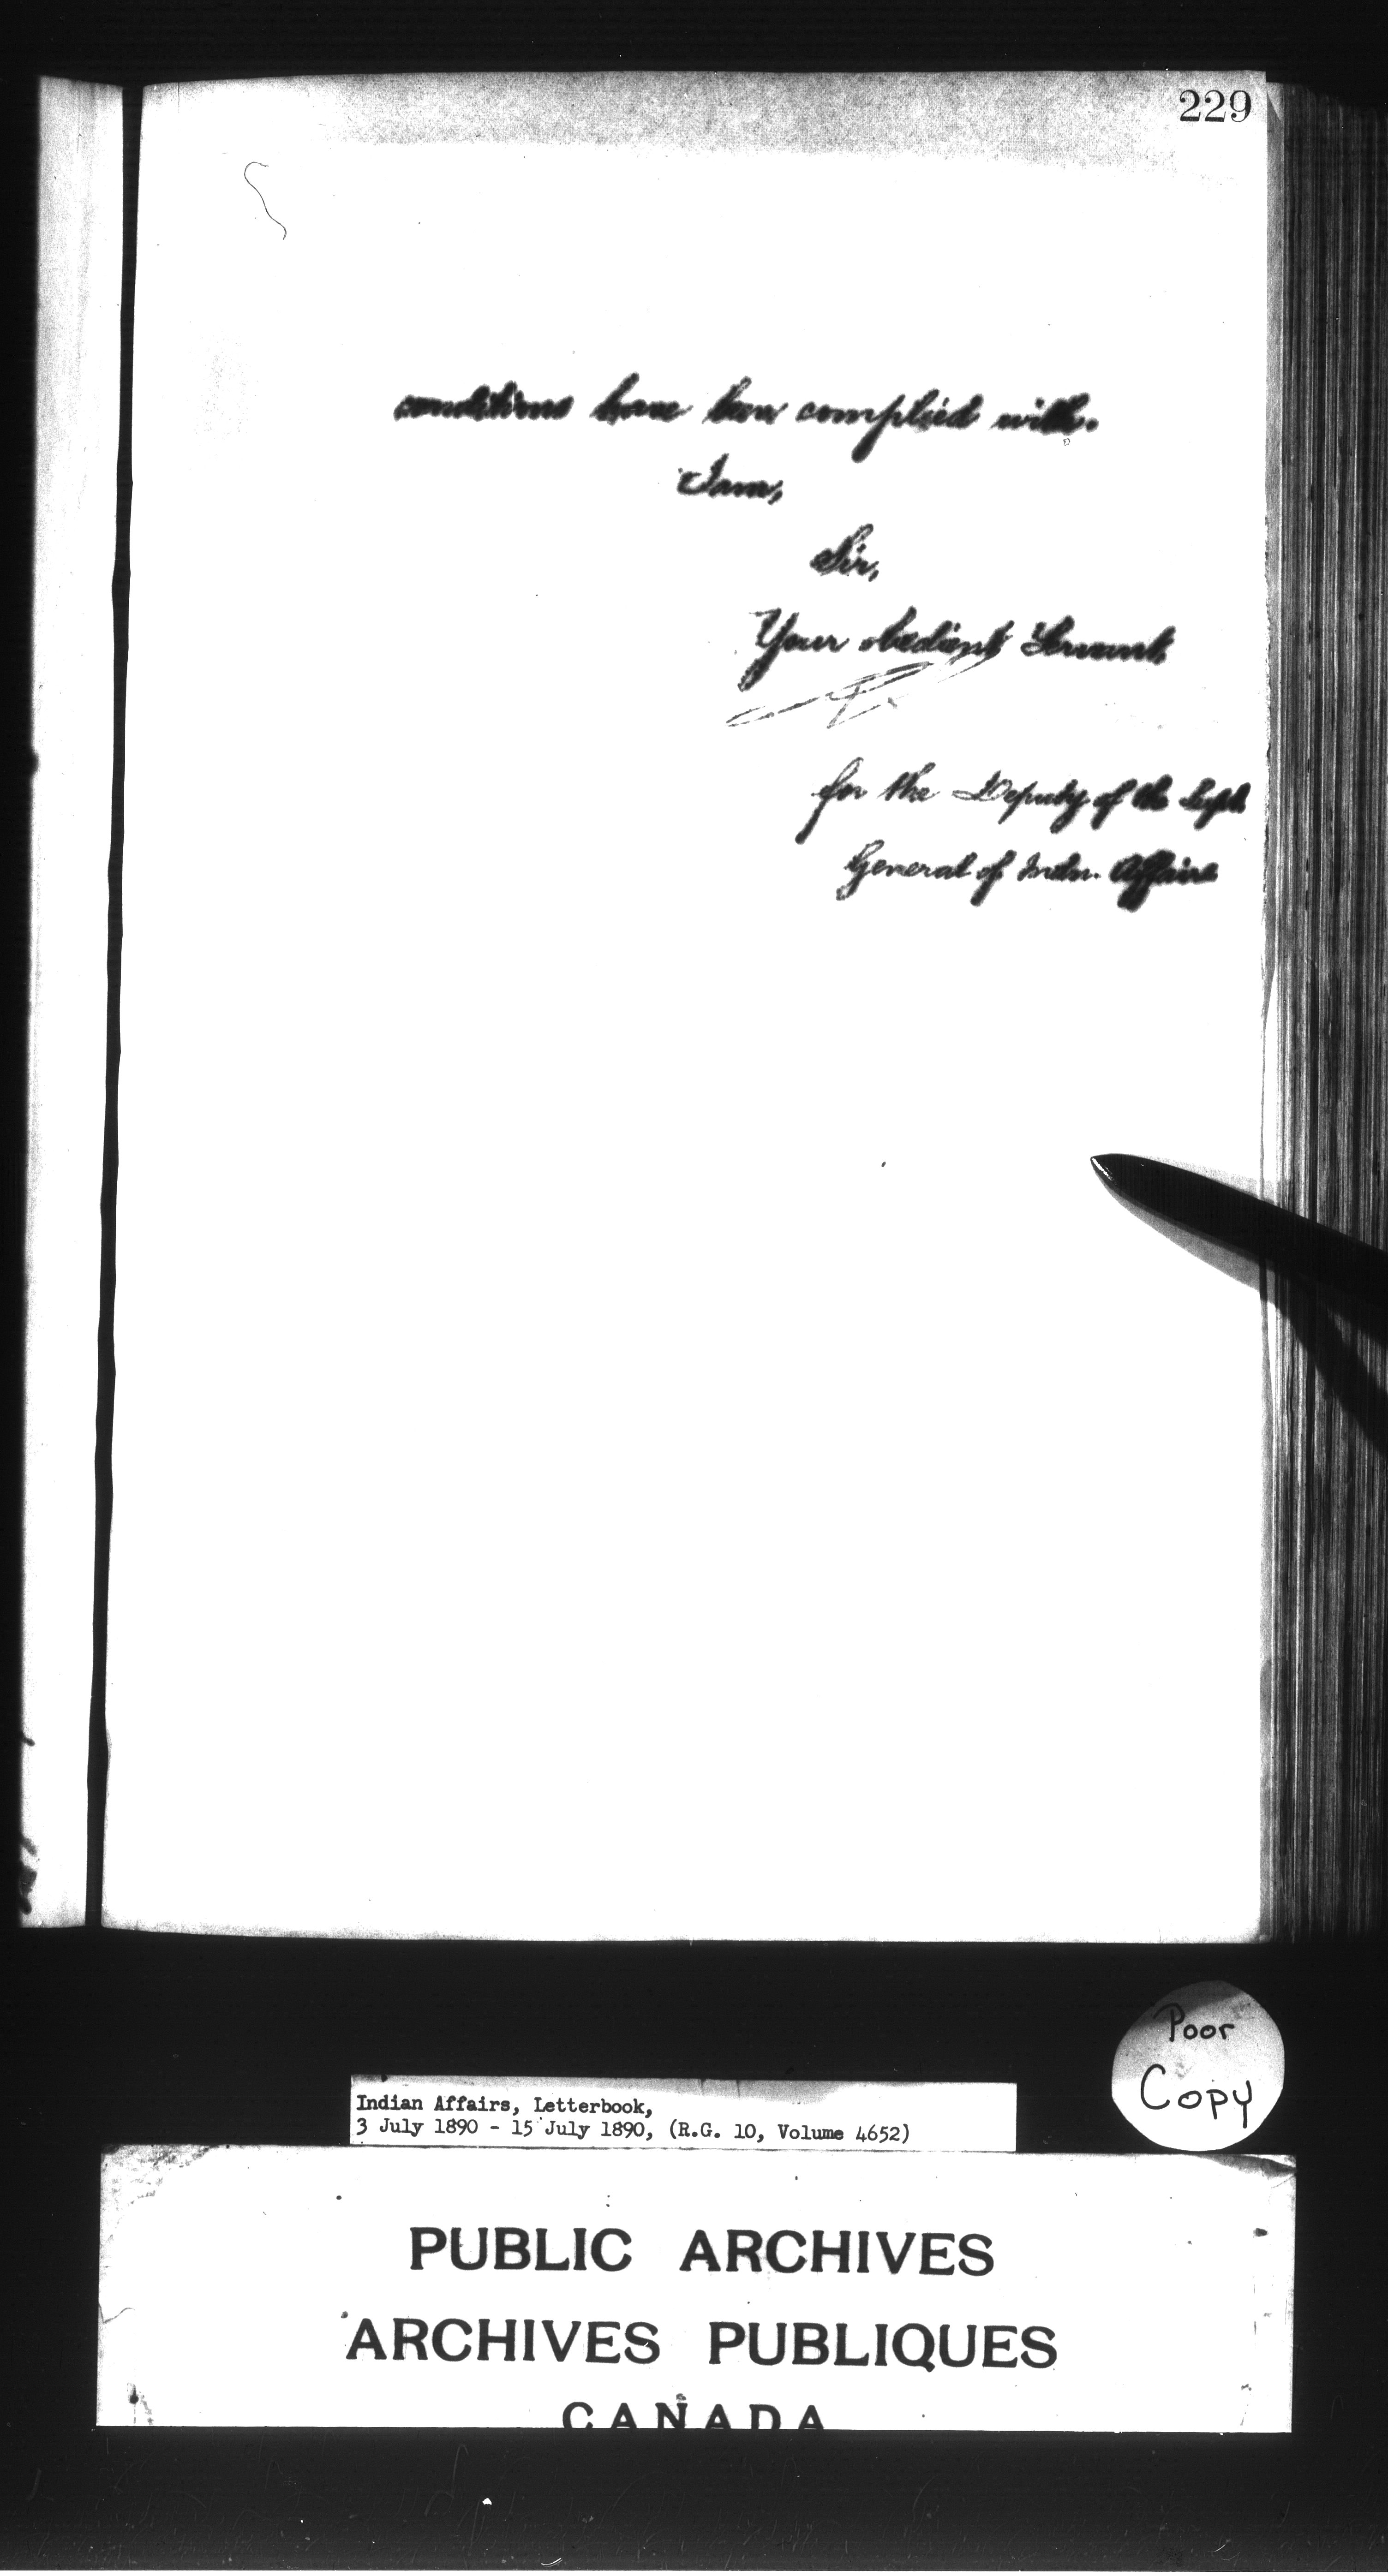 229
conditions have been complied with.
I am,
Sir,
Your obedient Servant,
for the Deputy of the Supt.
General of Indn. Affairs
Poor
Copy
Indian Affairs, Letterbook,
3 July 1890 - 15 July 1890, (R.G. 10, Volume 4652)
PUBLIC ARCHIVES
ARCHIVES PUBLIQUES
CANADA